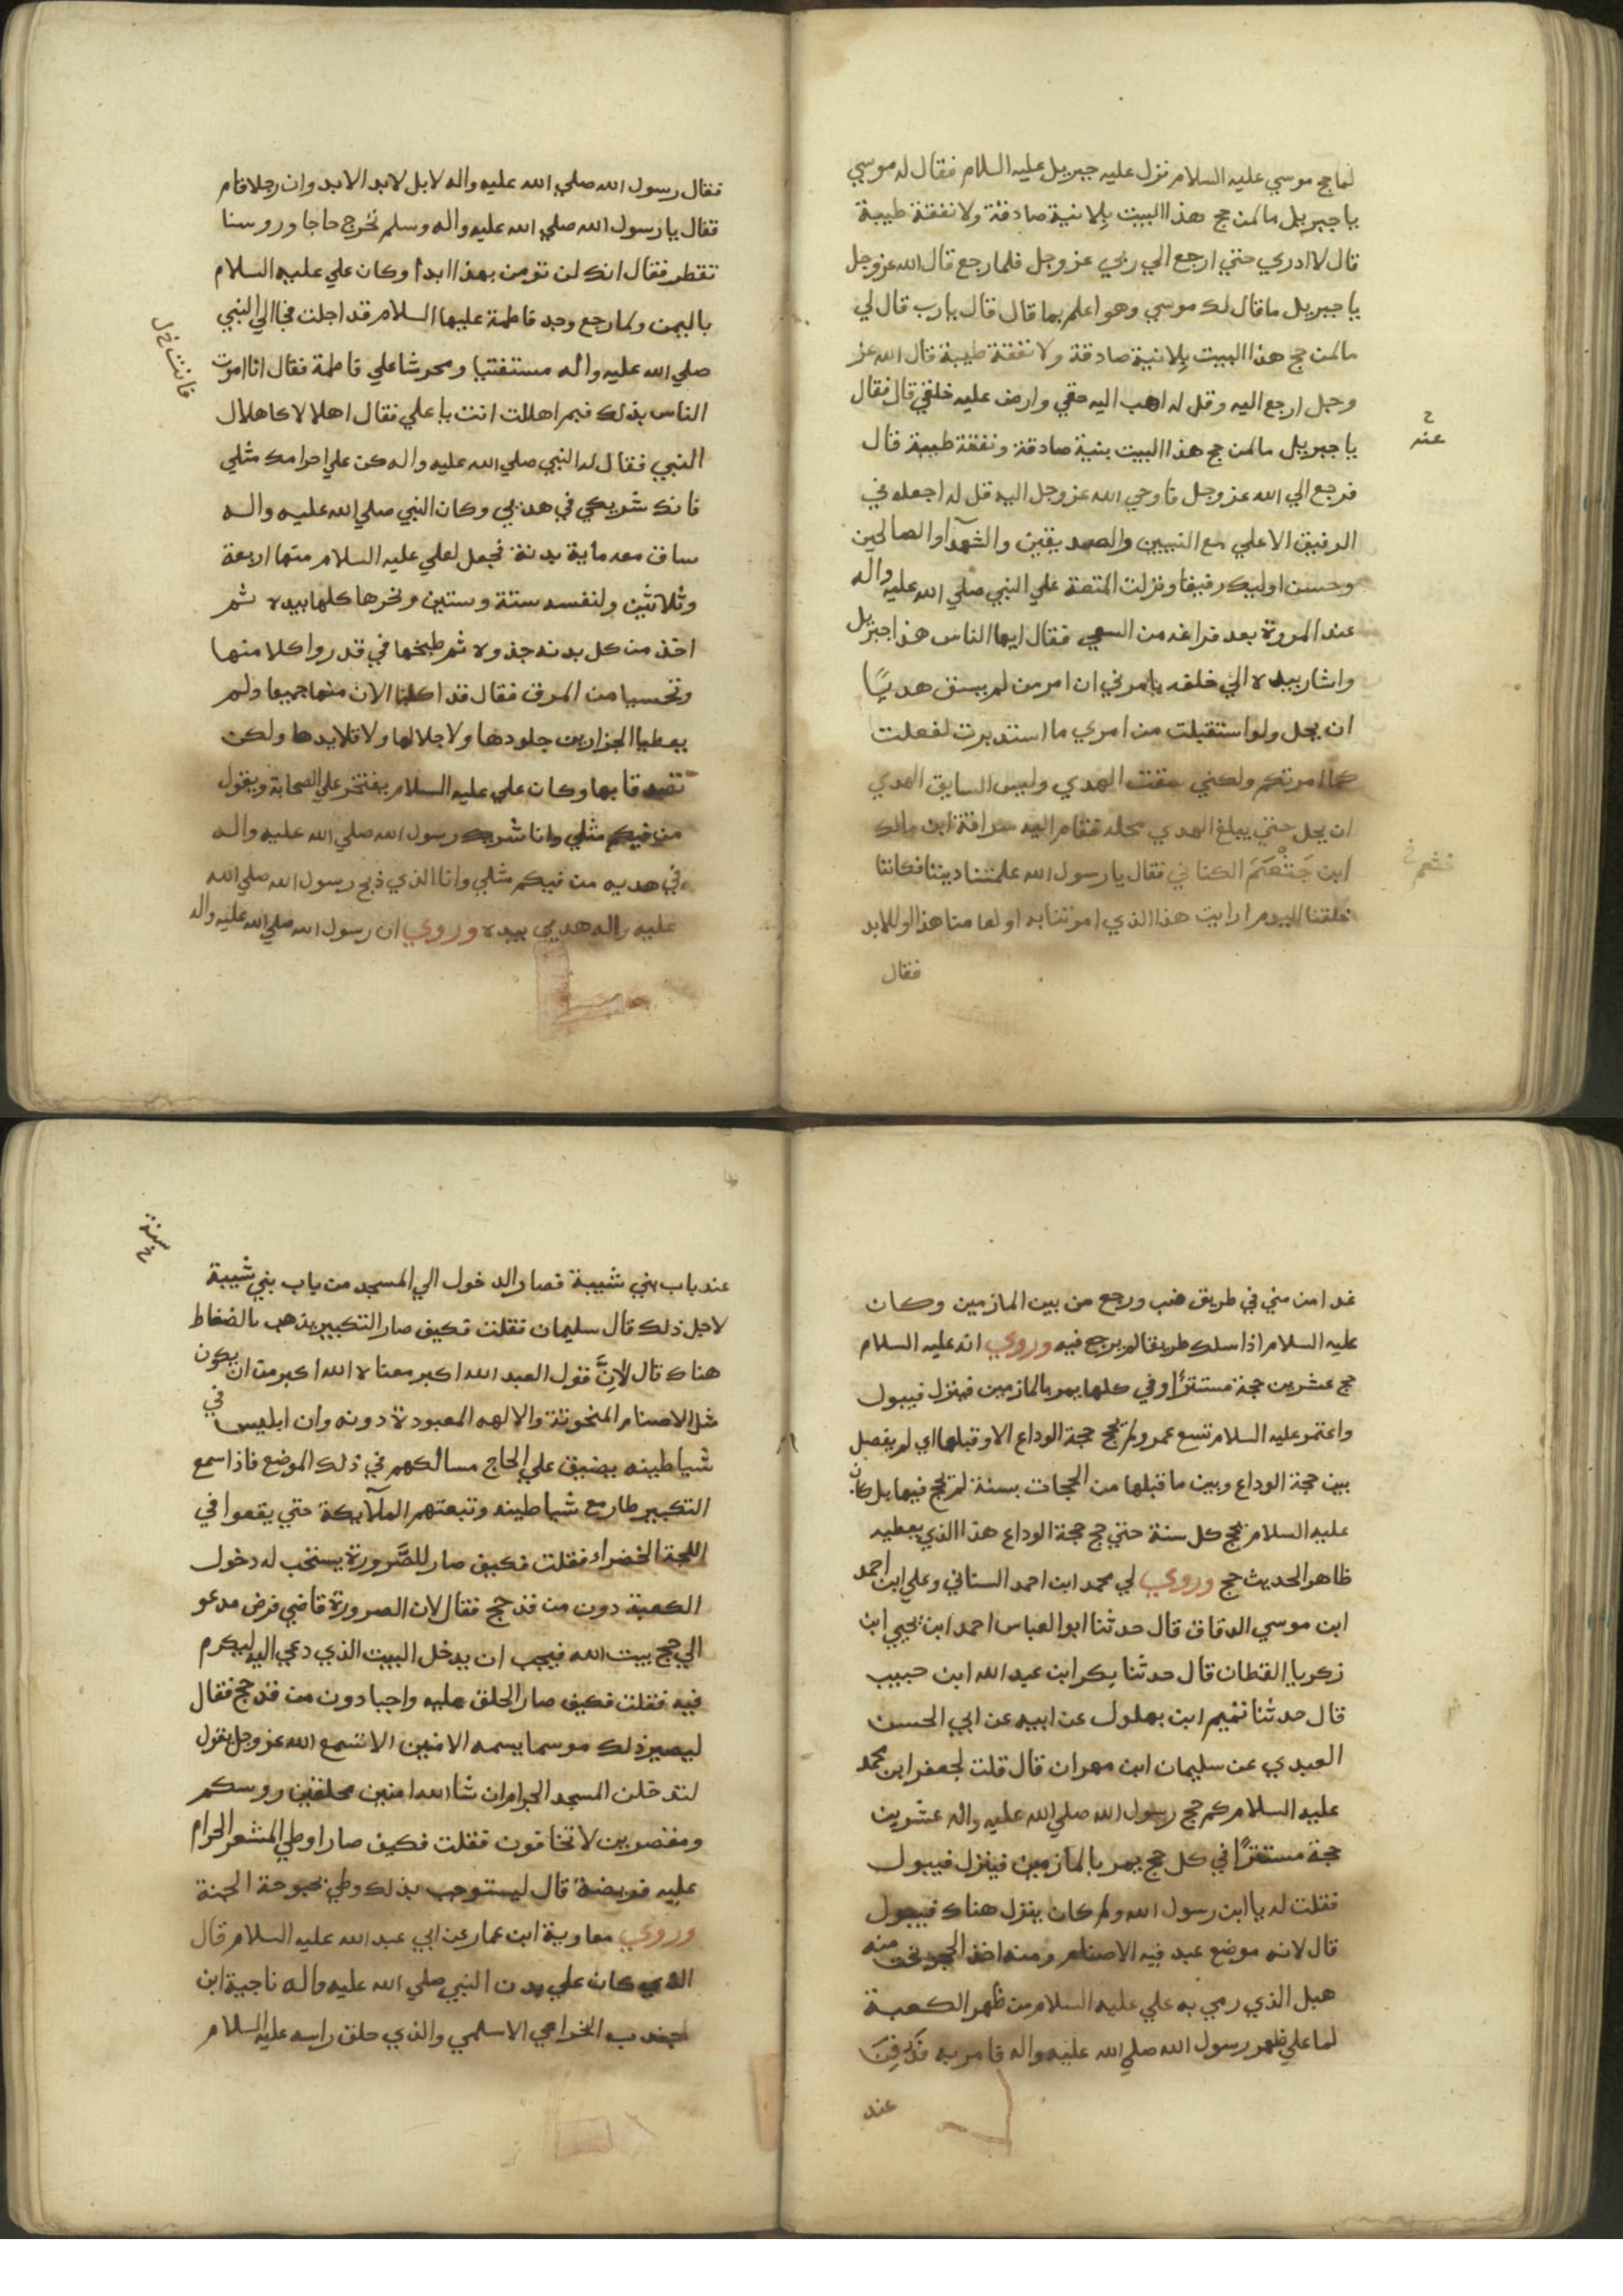 لما حج موسي عليه السلام نزل عليه جبريل عليه السلام فقال له موسي
يا جبريل ما لمن حج هذا البيت بلا نية صادقة ولا نفقة طيبة
قال لا ادري حتي ارجع الي ربي عز وجل فلما رجع قال الله عز وجل
يا جبريل ما قال لك موسي وهو اعلم بما قال قال يارب قال لي
ما لمن حج هذا البيت بلا نية صادقة ولا نفقة طيبة قال الله عز
وجل ارجع اليه وقل له اهب اليه حقي وارض عليه خلقي قال فقال
عنه
يا جبريل ما لمن حج هذا البيت بنية صادقة ونفقة طيبة قال
فرجع الي الله عز وجل فاوحي الله عز وجل اليه قل له اجعله في
الرفيق الاعلي مع النبيين والصديقين والشهدآ والصالحين
وحسن اوليك رفيقا ونزلت المتعة علي النبي صلي الله عليه واله
عند المروة بعد فراغه من السعي فقال ايها الناس هذا جبريل
واشار بيده الي خلفه يامرني ان امر من لم يسق هديًا
ان يحل ولو استقبلت من امري ما استدبرت لفعلت
كما امرتكم ولكني سقت الهدي وليس لسايق الهدي
ان يحل حتي يبلغ الهدي محله فقام اليه سراقة ابن مالك
ابن جَثْعَمَ الكناني فقال يا رسول الله علمتنا ديننا فكاننا
خثعم
خلقنا اليوم ارايت هذا الذي امرتنا به او لعامنا هذا او للابد
فقال
فقال رسول الله صلي الله عليه واله لا بل لابد الابد وان رجلا قام
فقال يا رسول الله صلي الله عليه واله وسلم نخرج حاجا وروسنا
تقطر فقال انك لن تومن بهذا ابدا وكان علي عليه السلام
باليمن ولما رجع وجد فاطمة عليها السلام قد احلت فجا الي النبي
صلي الله عليه واله مستفتيا ومحرشا علي فاطمة فقال انا امرت
فانت
الناس بذلك فبم اهللت انت يا علي فقال اهلالا كاهلال
النبي فقال له النبي صلي الله عليه واله كن علي احرامك مثلي
فانك شريكي في هديي وكان النبي صلي الله عليه واله
ساق معه ماية بدنة فجعل لعلي عليه السلام منها اربعة
وثلاثين ولنفسه ستة وستين ونحرها كلها بيده ثم
اخذ من كل بدنه جذوه ثم طبخها في قدر واكلا منها
وتحسيا من المرق فقال قد اكلنا الان منها جميعا ولم
يعطيا الجزارين جلودها ولا جلالها ولا قلايدها ولكن
تصدقا بها وكان علي عليه السلام يفتخر علي الصحابة ويقول
من فيكم مثلي وانا شريك رسول الله صلي الله عليه واله
في هديه من فيكم مثلي وانا الذي ذبح رسول الله صلي الله
عليه واله هديي بيده وروي ان رسول الله صلي الله عليه واله
غدا من مني في طريق ضب ورجع من بين المازمين وكان
عليه السلام اذا سلك طريقا لم يرجع فيه وروي انه عليه السلام
حج عشرين حجة مستترًا وفي كلها يمر بالمازمين فينزل فيبول
واعتمر عليه السلام تسع عمر ولم يحج حجة الوداع الا وقبلها اي لم يفصل
بين حجة الوداع وبين ما قبلها من الحجات بسنة لم يحج فيها بل كان
عليه السلام يحج كل سنة حتي حج حجة الوداع هذا الذي يعطيه
ظاهر الحديث حج وروي لي محمد ابن احمد السناني وعلي ابن احمد
ابن موسي الدقاق قال حدثنا ابو العباس احمد ابن يحيي ابن
زكريا القطان قال حدثنا بكر ابن عبد الله ابن حبيب
قال حدثنا تميم ابن بهلول عن ابيه عن ابي الحسن
العبدي عن سليمان ابن مهران قال قلت لجعفر ابن محمد
عليه السلام كم حج رسول الله صلي الله عليه واله عشرين
حجة مستترًا في كل حج يمر بالمازمين فينزل فيبول
فقلت له يا ابن رسول الله ولم كان ينزل هناك فيبول
قال لانه موضع عبد فيه الاصنام ومنه اخذ الحجر نحت منه
هبل الذي رمي به علي عليه السلام من ظهر الكعبة
لما علي ظهر رسول الله صلي الله عليه واله فامر به فدُفِنَ
عند
سنة
عند باب بني شيبة فصار الدخول الي المسجد من باب بني شيبة
لاجل ذلك قال سليمان فقلت فكيف صار التكبير يذهب بالضغاط
هناك قال لانَّ قول العبد الله اكبر معناه الله اكبر من ان يكون
مثل الاصنام المنحوتة والالهه المعبودة دونه وان ابليس في
شياطينه يضيق علي الحاج مسالكهم في ذلك الموضع فاذا سمع
التكبير طار مع شياطينه وتبعتهم الملآيكة حتي يقعوا في
اللجة الخضراء فقلت فكيف صار للصَّرورة يستحب له دخول
الكعبة دون من قد حج فقال لان الصرورة قاضي فرض مدعو
الي حج بيت الله فيجب ان يدخل البيت الذي دعي اليه ليكرم
فيه فقلت فكيف صار الحلق عليه واجبا دون من قد حج فقال
ليصير ذلك موسما بسمه الامنين الا تسمع الله عز وجل يقول
لتدخلن المسجد الحرام ان شا الله امنين محلقين روسكم
ومقصرين لا تخافون فقلت فكيف صار وطي المشعر الحرام
عليه فريضة قال ليستوجب بذلك وطي بحبوحة الجنة
وروي معاوية ابن عمار عن ابي عبد الله عليه السلام قال
الذي كان علي بدن النبي صلي الله عليه واله ناجية ابن
جندب الخزاعي الاسلمي والذي حلق راسه عليه السلام